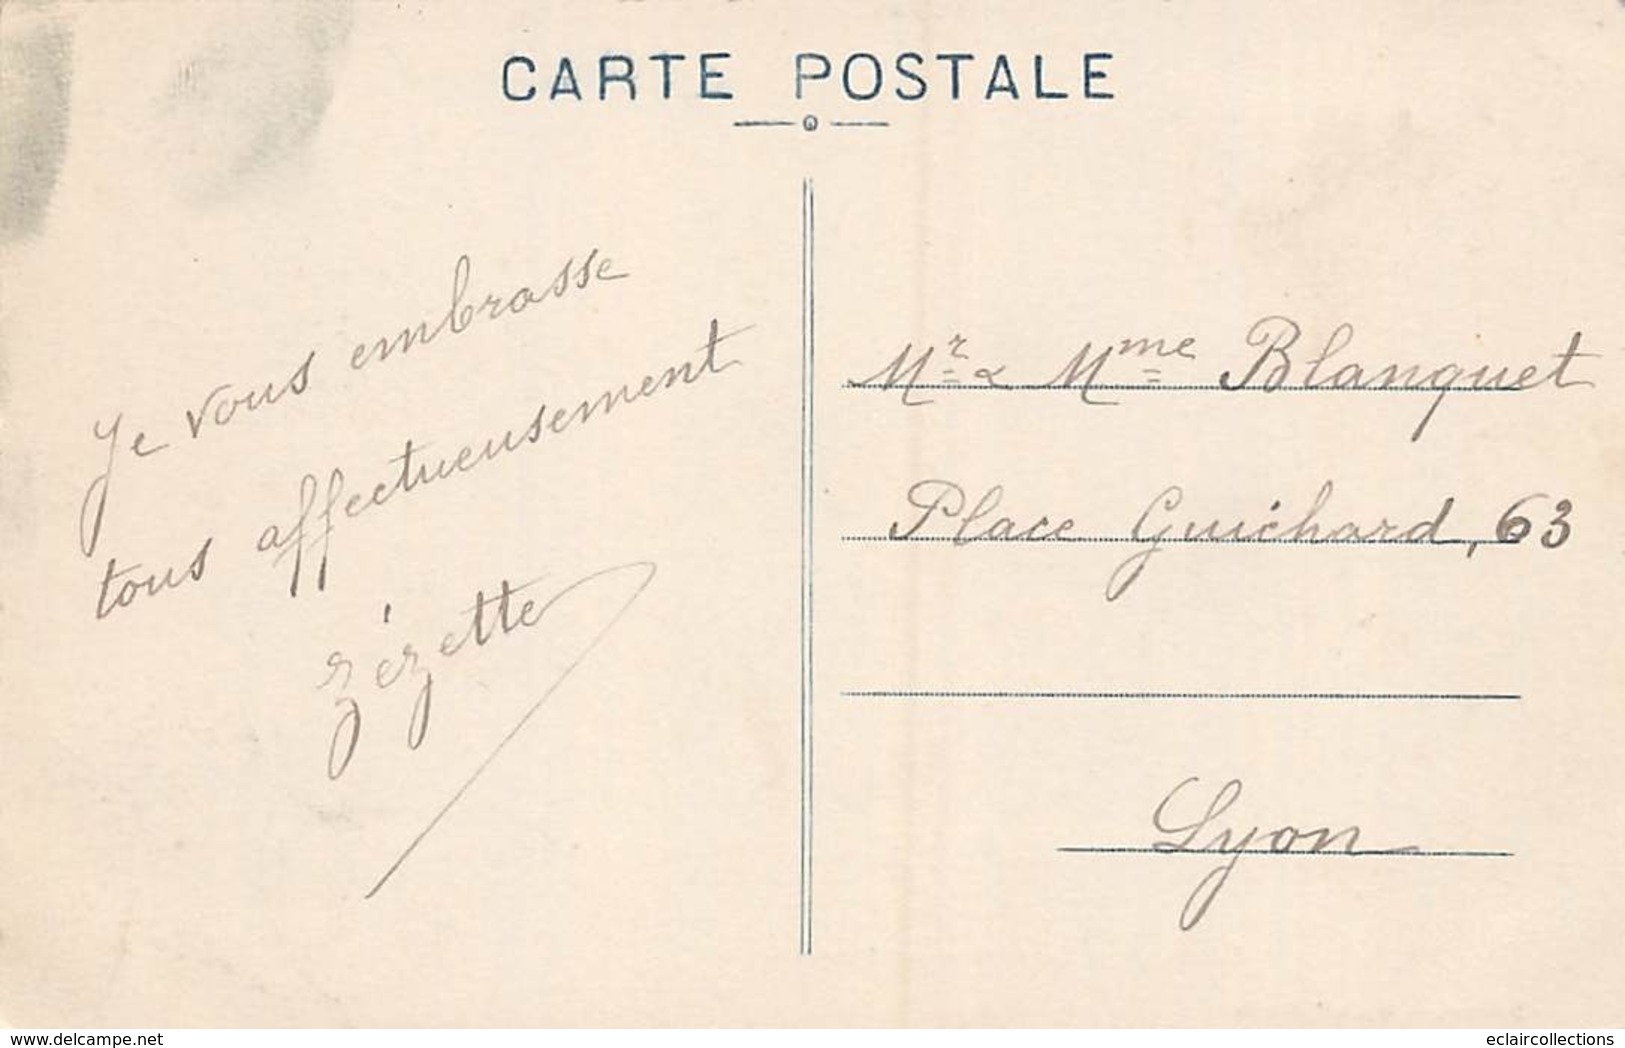 CARTE POSTALE
Je vous embrasse
tous affectueusement
Zézette
Mr & Mme Blanquet
Place Guichard, 63
Lyon
delcampe.net
eclaircollections